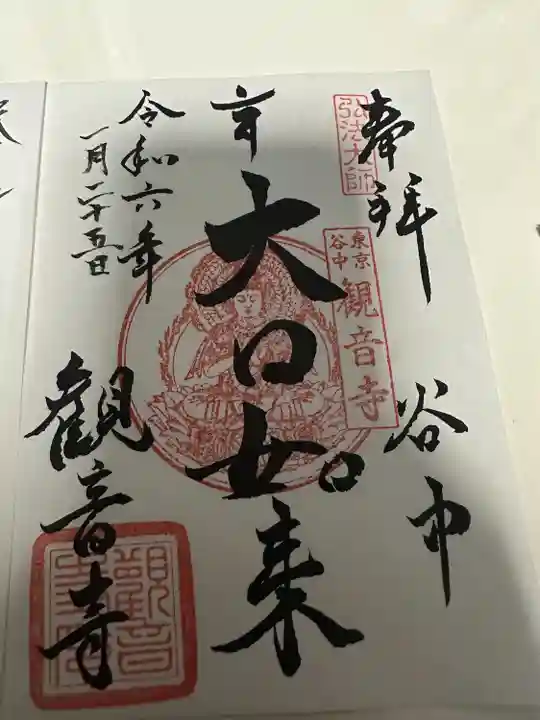 奉拝
谷中
弘法大師
東京
谷中
観音寺
大日如来
令和六年
一月二十五日
觀音寺